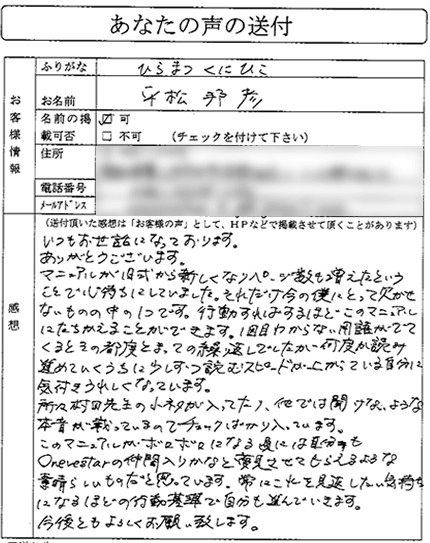 あなたの声の送付
お客様情報
ふりがな ひらまつ くにひこ
お名前 平松 邦彦
名前の掲載可否 ☑ 可
□ 不可 (チェックを付けて下さい)
住所
電話番号
メールアドレス
感想
(送付頂いた感想は「お客様の声」として、HPなどで掲載させて頂くことがあります)
いつもお世話になっております。
ありがとうございます。
マニュアルが旧式から新しくなりページ数も増えたという
ことで心待ちにしていました。それだけ今の僕にとって欠かせ
ないものの中の1つです。行動すればするほどこのマニュアル
にたちかえることができます。1回目わからない用語がでて
くるとその都度とまっての繰り返しでしたが何度か読み
進めていくうちに少しずつ読むスピードが上がっている自分に
気付きうれしくなっています。
所々村田先生の小ネタが入ってたり、他では聞けないような
本音が載っているのでチェックばかり入っています。
このマニュアルがボロボロになる頃には自分も
Onevestarの仲間入りかなと夢見させてもらえるような
素晴らしいものだと思っています。常にこれを見返したい気持ち
になるほどの行動基準で自分も進んでいきます。
今後ともよろしくお願い致します。